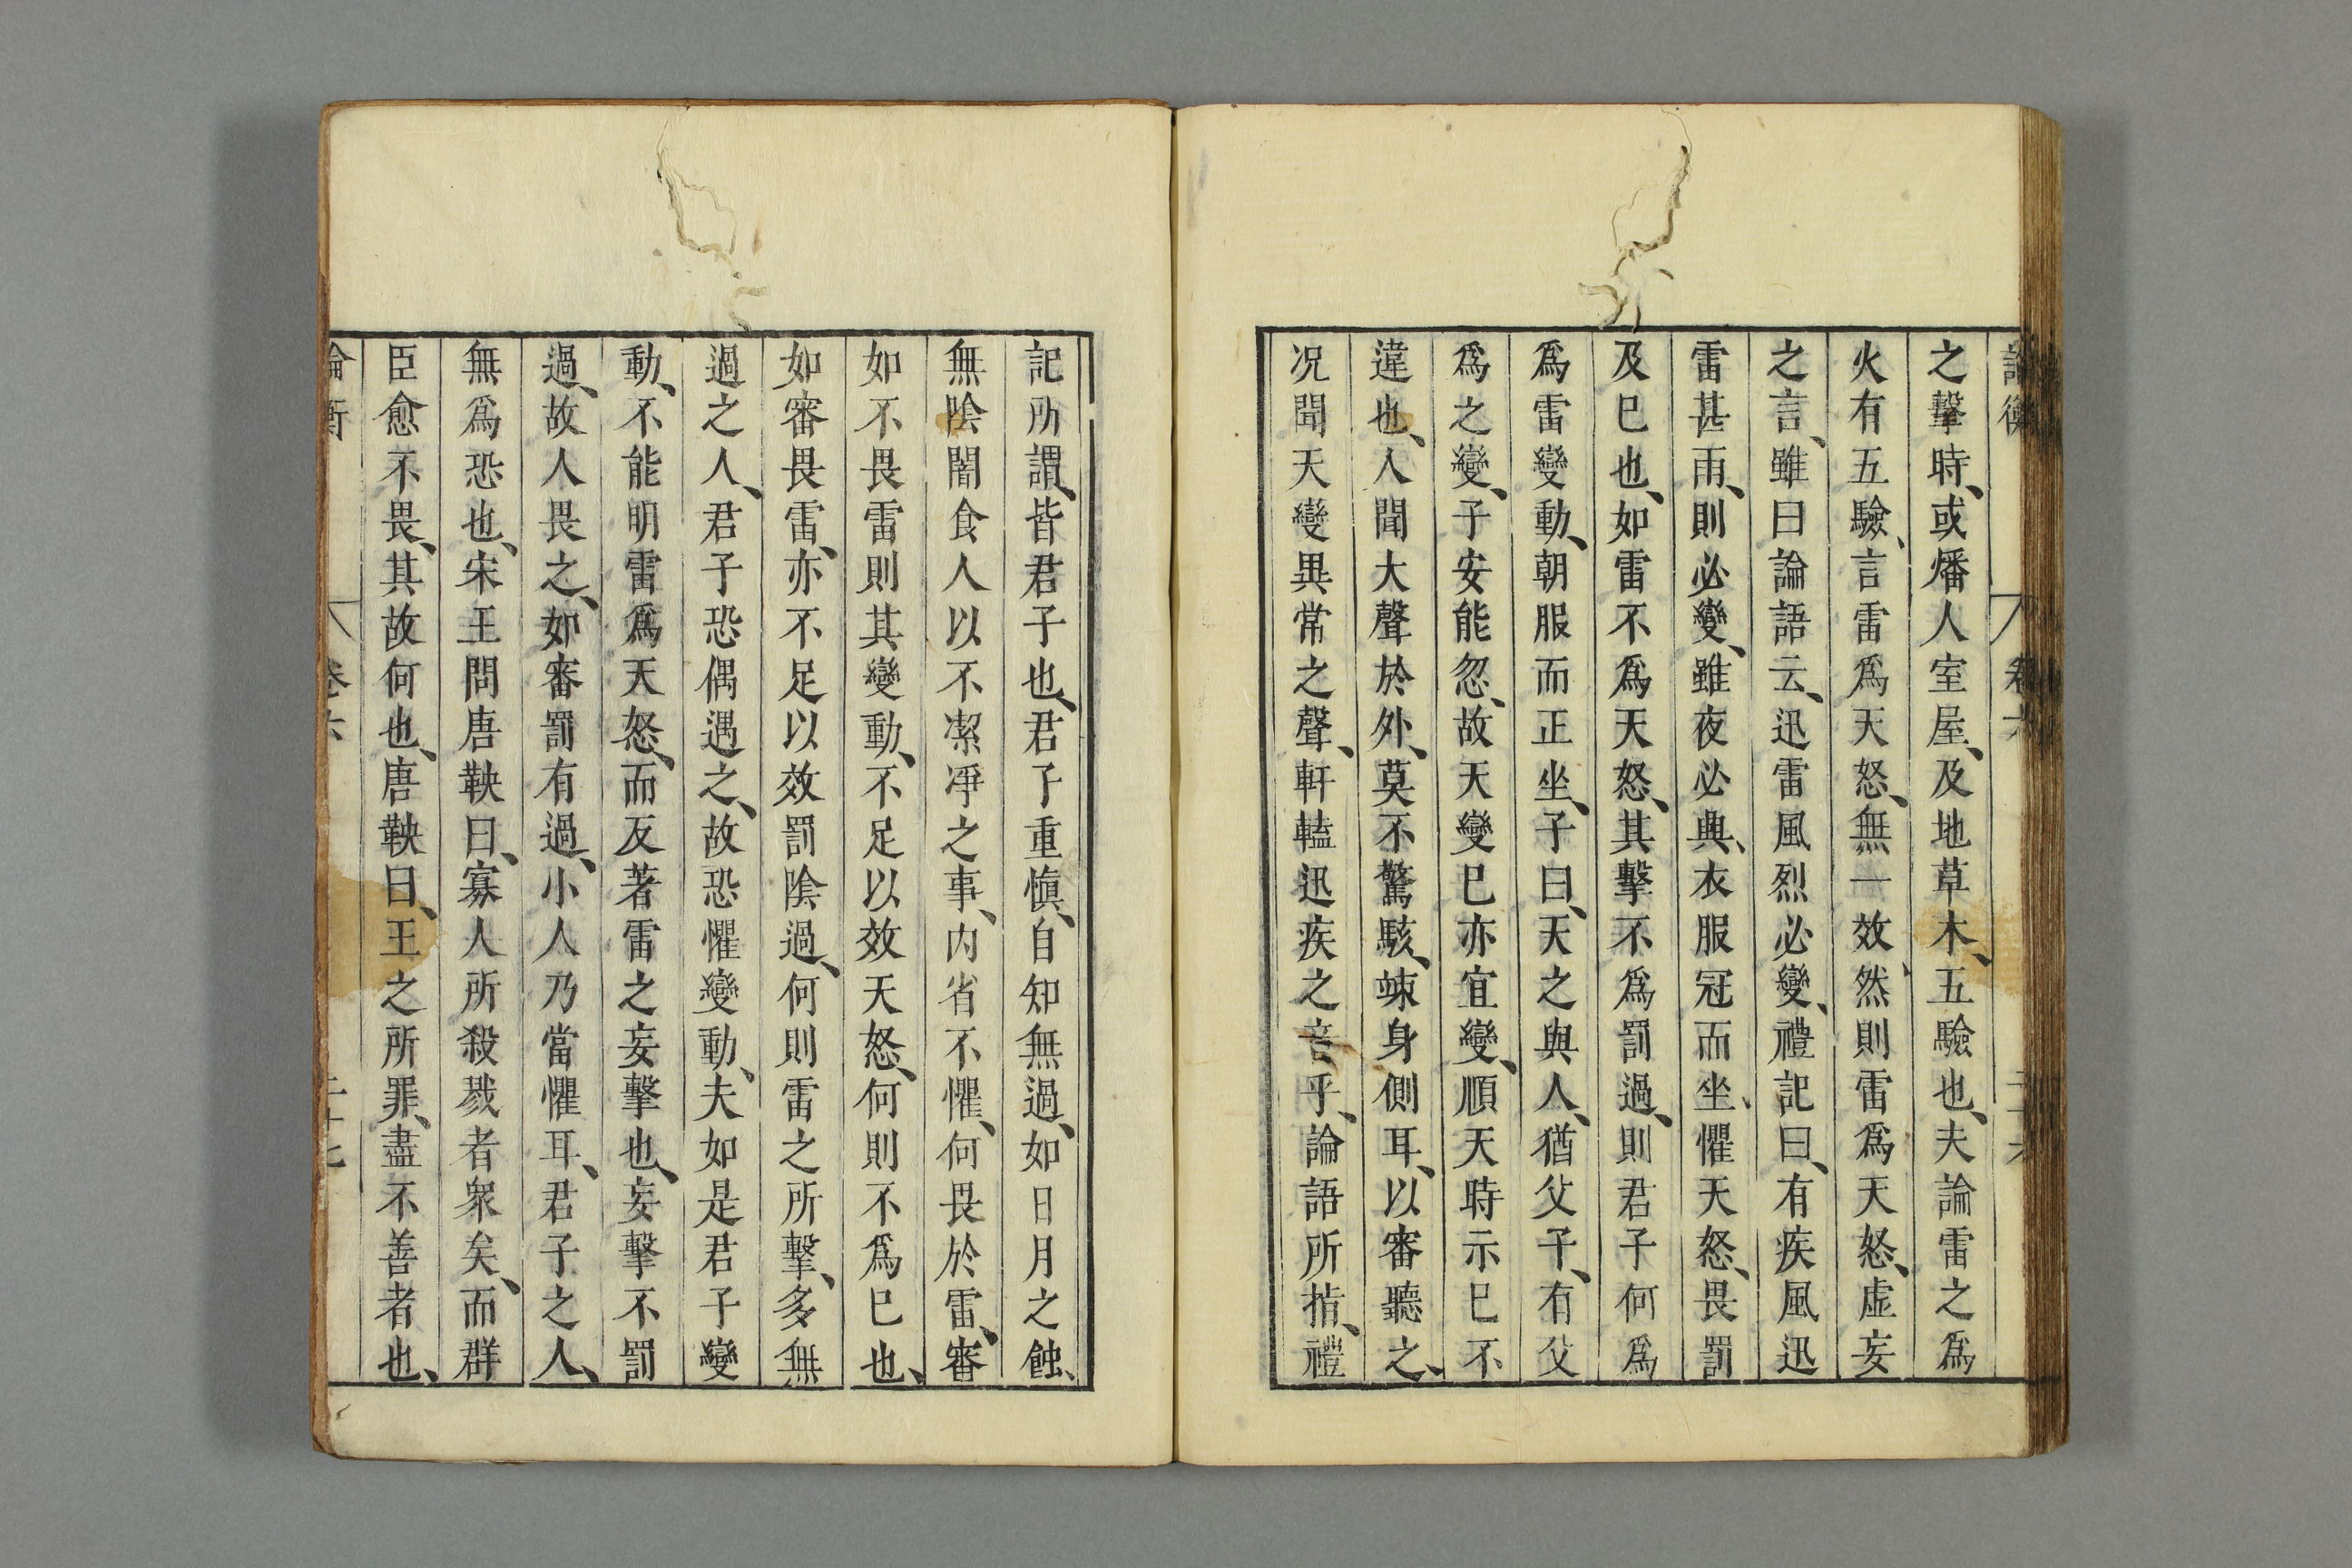 論衡 卷六
之擊時、或燔人室屋、及地草木、五驗也、夫論雷之爲
火有五驗、言雷爲天怒、無一效、然則雷爲天怒、虛妄
之言、雖曰論語云、迅雷風烈必變、禮記曰、有疾風迅
雷甚雨、則必變、雖夜必興、衣服冠而坐、懼天怒、畏罰
及巳也、如雷不爲天怒、其擊不爲罰過、則君子何爲
爲雷變動、朝服而正坐、子曰、天之與人、猶父子、有父
爲之變、子安能忽、故天變巳亦宜變、順天時示巳不
違也、人聞大聲於外、莫不驚駭、竦身側耳、以審聽之、
况聞天變異常之聲、軒䡷迅疾之音乎、論語所指、禮
記所謂、皆君子也、君子重愼、自知無過、如日月之蝕、
無陰闇食人以不潔凈之事、内省不懼、何畏於雷、審
如不畏雷則其變動、不足以效天怒、何則不爲巳也、
如審畏雷、亦不足以效罰陰過、何則雷之所擊、多無
過之人、君子恐偶遇之、故恐懼變動、夫如是君子變
動、不能明雷爲天怒、而反著雷之妄擊也、妄擊不罰
過、故人畏之、如審罰有過、小人乃當懼耳、君子之人、
無爲恐也、宋王問唐鞅曰、寡人所殺戮者衆矣、而群
臣愈不畏、其故何也、唐鞅曰、王之所罪、盡不善者也、
論衡 卷六 二十七